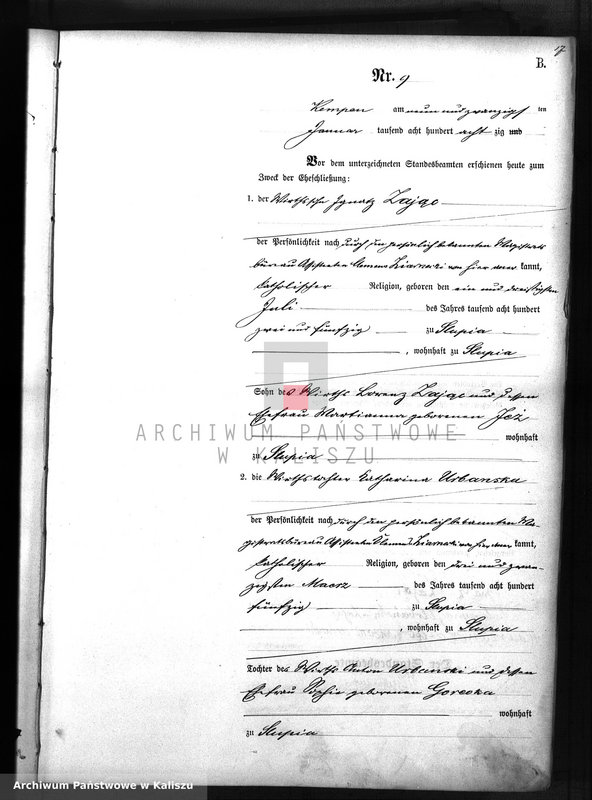 17
B.
Nr. 9
Kempen am neun und zwanzigsten
Januar tausend acht hundert achtzig und
Vor dem unterzeichneten Standesbeamten erschienen heute zum
Zweck der Eheschließung:
1. der Wirthssohn Ignatz Zając
der Persönlichkeit nach durch den persönlich bekannten Magistrats
bureau Assistenten von hier aner kannt,
katholischer Religion, geboren den ein und dreißigsten
Juli des Jahres tausend acht hundert
zwei und fünfzig zu Slupia
, wohnhaft zu Slupia
Sohn des Wirths Lorenz Zając und dessen
Ehefrau Marianna geborenen Jeż
wohnhaft
zu Slupia
2. die Wirthstochter Catharina Urbanska
der Persönlichkeit nach durch den persönlich bekannten Ma
gistratsbureau Assistenten von hier aner kannt,
katholischer Religion, geboren den drei und zwan
zigsten Maerz des Jahres tausend acht hundert
fünfzig zu Slupia
, wohnhaft zu Slupia
Tochter des Wirths Anton Urbanski und dessen
Ehefrau Sophie geborenen Gorecka
wohnhaft
zu Slupia
ARCHIWUM PAŃSTWOWE
W KALISZU
Archiwum Państwowe w Kaliszu